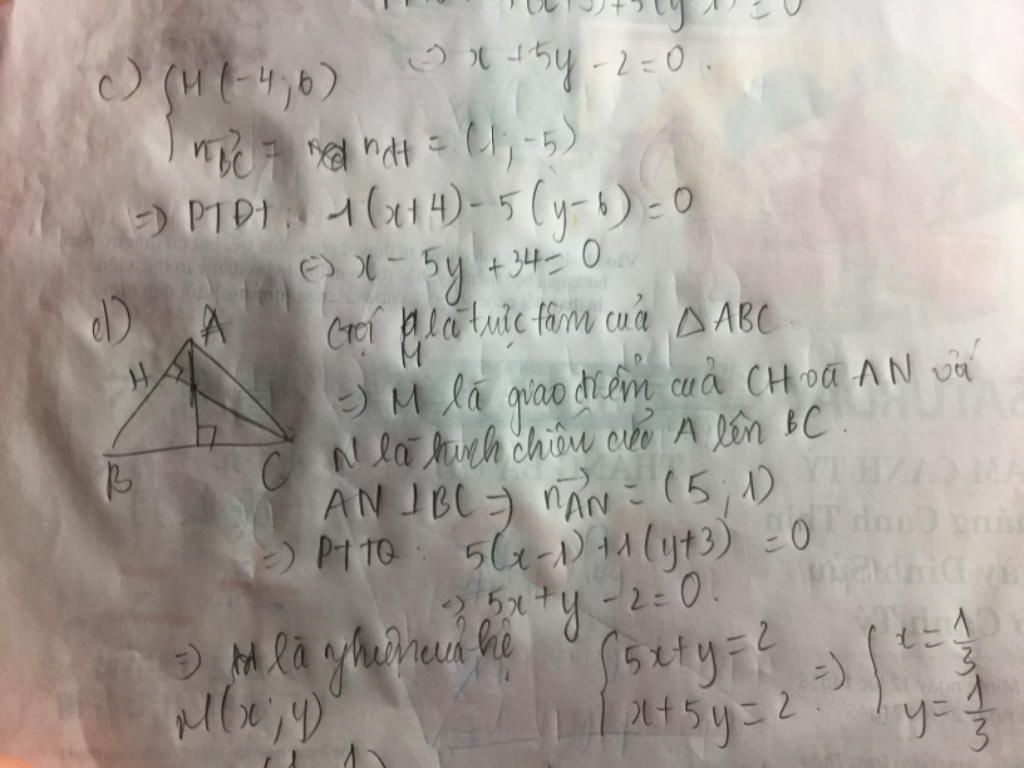 ⇔ x + 5y - 2 = 0.
c) { M(-4; 6)
n⃗BC = nCH = (1; -5)
⇒ PTDT: 1(x+4) - 5(y-6) = 0
⇔ x - 5y + 34 = 0
d) Gọi M là trực tâm của △ABC.
⇒ M là giao điểm của CH và AN với
N là hình chiếu của A lên BC.
A
H
B
C
AN ⊥ BC ⇒ n⃗AN = (5; 1)
⇒ PTTQ: 5(x-1) + 1(y+3) = 0
⇔ 5x + y - 2 = 0.
⇒ M là nghiệm của hệ { 5x + y = 2
x + 5y = 2. ⇒ { x = 1/3
y = 1/3
M(x; y)